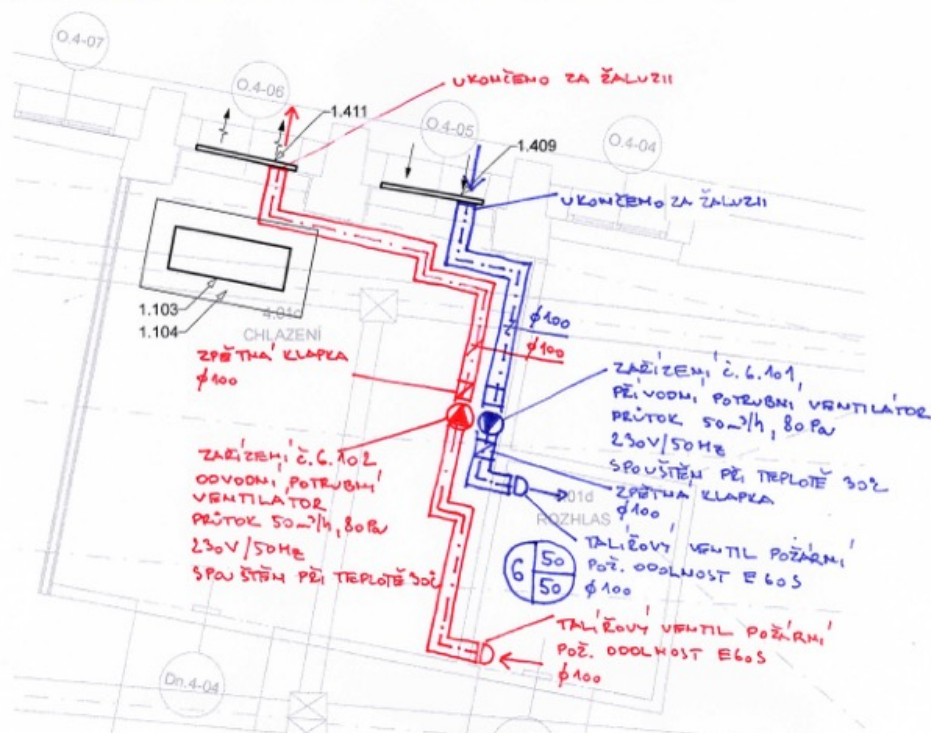 O.4-07
O.4-06
1.411
UKONČENO ZA ŽALUZII
O.4-05
1.409
O.4-04
UKONČENO ZA ŽALUZII
1.103
1.104
4.01c
CHLAZENÍ
ZPĚTNÁ KLAPKA
φ100
φ100
φ100
ZAŘÍZENÍ č.6.101,
PŘÍVODNÍ POTRUBNÍ VENTILÁTOR
PRŮTOK 50m³/h, 80Pa
230V/50Hz
SPOUŠTĚN PŘI TEPLOTĚ 30°C
ZPĚTNÁ KLAPKA
φ100
ZAŘÍZENÍ č.6.102
ODVODNÍ POTRUBNÍ
VENTILÁTOR
PRŮTOK 50m³/h, 80Pa
230V/50Hz
SPOUŠTĚN PŘI TEPLOTĚ 30°C
01d
ROZHLAS
6 50
50
TALÍŘOVÝ VENTIL POŽÁRNÍ
POŽ. ODOLNOST E60S
φ100
TALÍŘOVÝ VENTIL POŽÁRNÍ
POŽ. ODOLNOST E60S
φ100
Dn.4-04